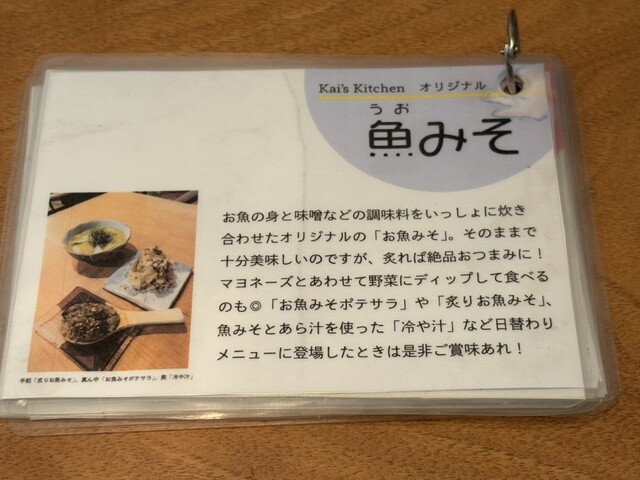 Kai's Kitchen オリジナル
うお
魚みそ
お魚の身と味噌などの調味料をいっしょに炊き
合わせたオリジナルの「お魚みそ」。そのままで
十分美味しいのですが、炙れば絶品おつまみに！
マヨネーズとあわせて野菜にディップして食べる
のも◎「お魚みそポテサラ」や「炙りお魚みそ」、
魚みそとあら汁を使った「冷や汁」など日替わり
メニューに登場したときは是非ご賞味あれ！
手前「炙りお魚みそ」、真ん中「お魚みそポテサラ」、奥「冷や汁」